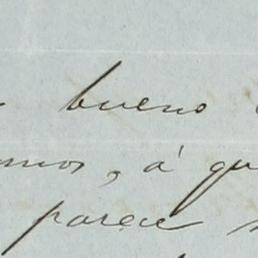 bueno
mos, á qu
parece